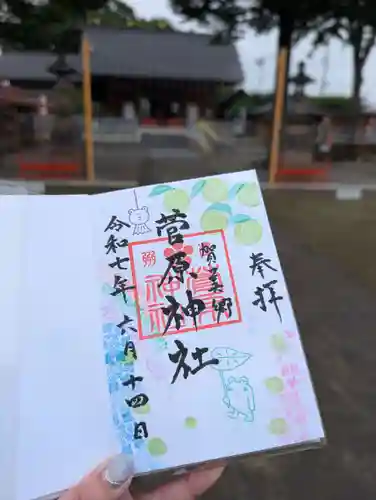 奉拝
賀美郷
菅原神社
令和七年
六月十四日